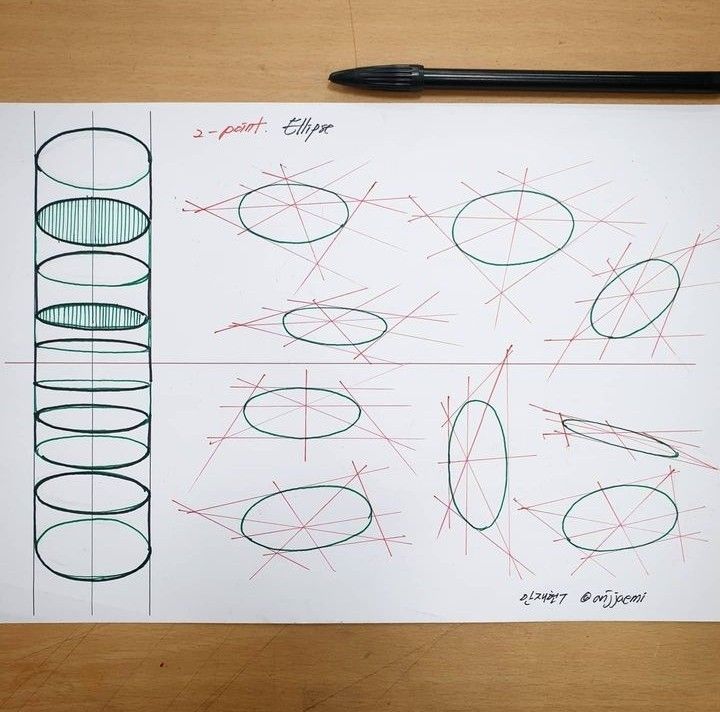 2-point. Ellipse
@onjjaemi